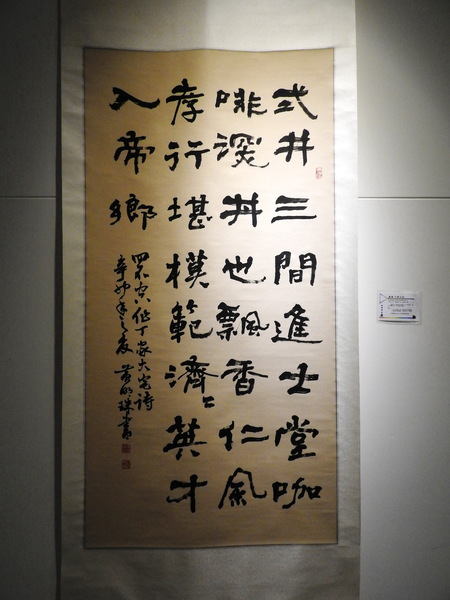 式井三間進士堂咖
啡深丼也飄香仁風
孝行堪模範濟〻英才
入帝鄉
丁家大宅詩
辛卯年之夏 黃明珠書